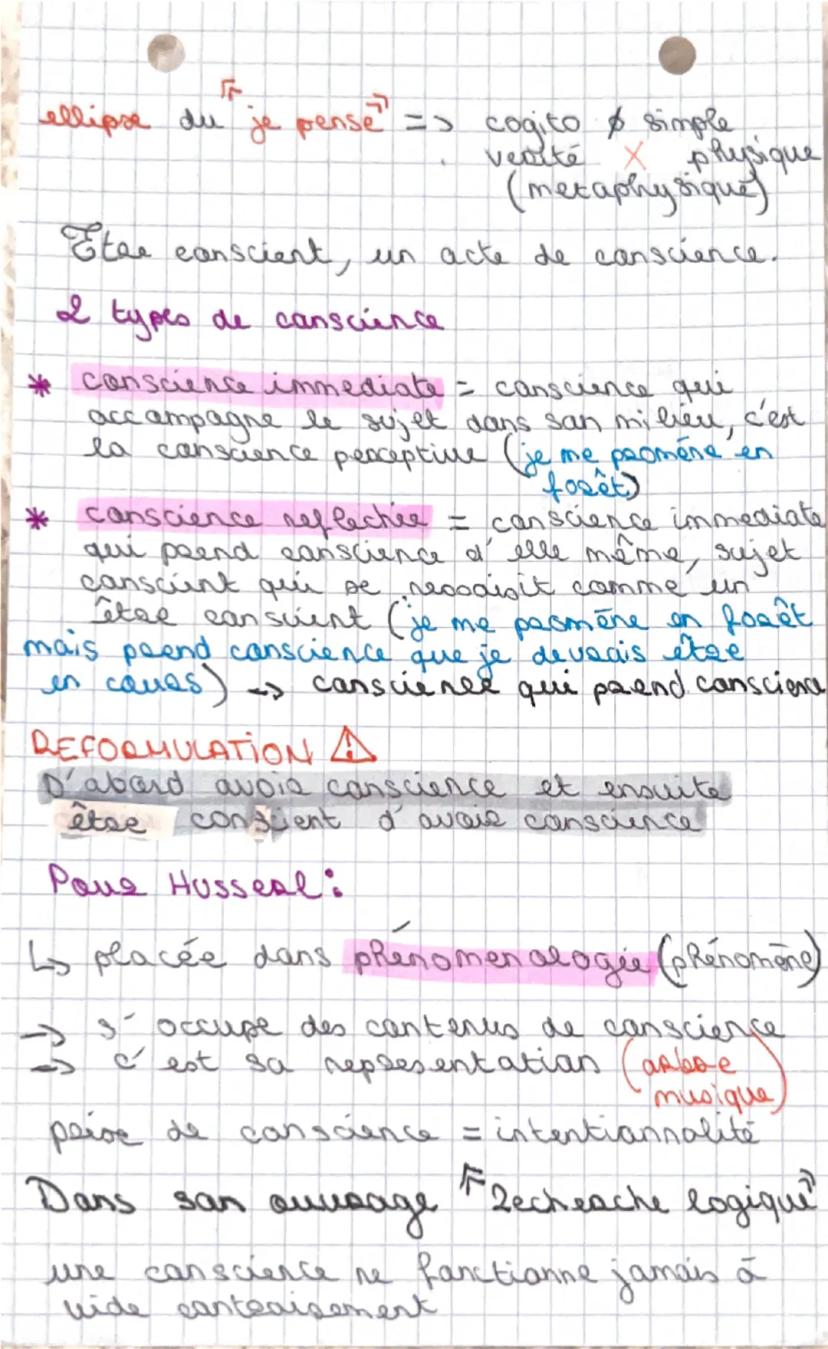 ellipse du "je pense" => cogito ∅ simple
verité X physique
(metaphysique)
Être conscient, un acte de conscience.
2 types de conscience
* conscience immediate = conscience qui
accompagne le sujet dans son milieu, c'est
la conscience perceptive (je me promène en
forêt)
* conscience reflechie = conscience immediate
qui prend conscience d'elle même, sujet
conscient qui se ressaisit comme un
être conscient (je me promène en forêt
mais prend conscience que je devrais être
en cours) -> conscience qui prend conscience
REFORMULATION ⚠
D'abord avoir conscience et ensuite
être conscient d'avoir conscience
Pour Husserl :
↳ placée dans phénomenologie (phénomène)
-> s'occupe des contenus de conscience
-> c'est sa representation (arbre
musique)
prise de conscience = intentionnalité
Dans son ouvrage "Recherche logique"
une conscience ne fonctionne jamais à
vide contrairement